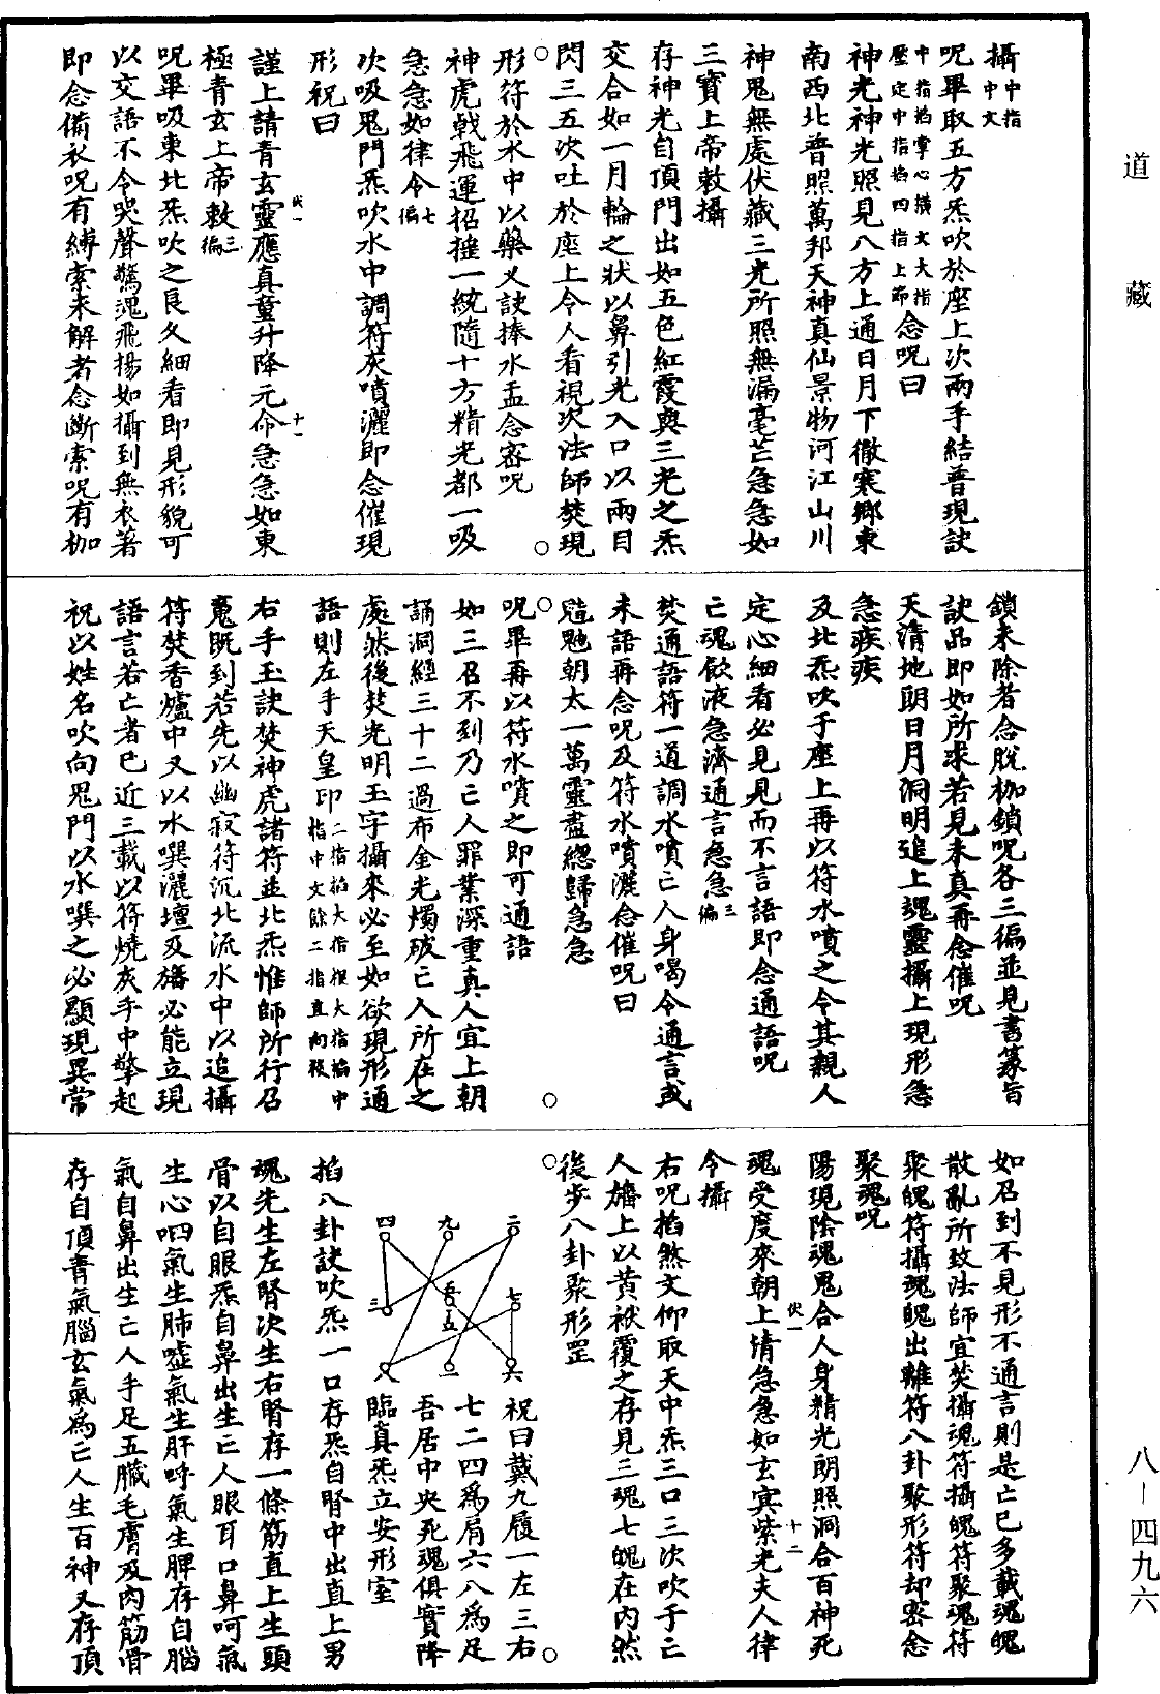 道藏
八—四九六
攝中指中文
呪畢取五方炁吹於座上次兩手結普現訣
中指掐掌心橫文大指壓定中指掐四指上節念呪曰
神光神光照見八方上通日月下徹寒鄉東
南西北普照萬邦天神真仙景物河江山川
神鬼無處伏藏三光所照無漏毫芒急急如
三寶上帝敕攝
存神光自頂門出如五色紅霞與三光之炁
交合如一月輪之狀以鼻引光入口以兩目
閃三五次吐於座上令人看視次法師焚現
形符於水中以藥叉訣捧水盂念密呪
神虎戟飛運招摧一統隨十方精光都一吸
急急如律令七徧
次吸鬼門炁吹水中調符灰噴灑即念催現
形祝曰
謹上請青玄靈應真童升降元命急急如東
極青玄上帝敕三徧
呪畢吸東北炁吹之良久細看即見形貌可
以交語不令哭聲驚魂飛揚如攝到無衣著
即念備衣呪有縛索未解者念斷索呪有枷
伏一
十一
鎖未除者念脫枷鎖呪各三徧並見書篆旨
訣品即如所求若見未真再念催呪
天清地朗日月洞明追上魂靈攝上現形急
急疾疾
及北炁吹于座上再以符水噴之令其親人
定心細看必見見而不言語即念通語呪
亡魂飲液急濟通言急急三徧
焚通語符一道調水噴亡人身喝令通言或
未語再念呪及符水噴灑念催呪曰
魒魓朝太一萬靈盡總歸急急
呪畢再以符水噴之即可通語
如三召不到乃亡人罪業深重真人宜上朝
誦洞經三十二過布金光燭破亡人所在之
處然後焚光明玉字攝來必至如欲現形通
語則左手天皇印二指掐大指根大指掐中指中文餘二指直向後
右手玉訣焚神虎諸符並北炁惟師所行召
魂既到若先以幽寂符沉北流水中以追攝
符焚香爐中又以水噀灑壇及旛必能立現
語言若亡者已近三載以符燒灰手中擎起
祝以姓名吹向鬼門以水噀之必顯現異常
如召到不見形不通言則是亡已多載魂魄
散亂所致法師宜焚攝魂符攝魄符聚魂符
聚魄符攝魂魄出離符八卦聚形符却密念
聚魂呪
陽現陰魂鬼合人身精光朗照洞合百神死
魂受度來朝上情急急如玄冥紫光夫人律
令攝
右呪掐煞文仰取天中炁三口三次吹于亡
人旛上以黃袱覆之存見三魂七魄在內然
後步八卦聚形罡
伏一
十二
二 九 四
七 吾五 三
六 一 八
祝曰戴九履一左三右
七二四為肩六八為足
吾居中央死魂俱實降
臨真炁立安形室
掐八卦訣吹炁一口存炁自腎中出直上男
魂先生左腎次生右腎存一條筋直上生頭
骨以自眼炁自鼻出生亡人眼耳口鼻呵氣
生心呬氣生肺噓氣生肝呼氣生脾存自腦
氣自鼻出生亡人手足五臟毛膚及肉筋骨
存自頂青氣腦玄氣為亡人生百神又存頂